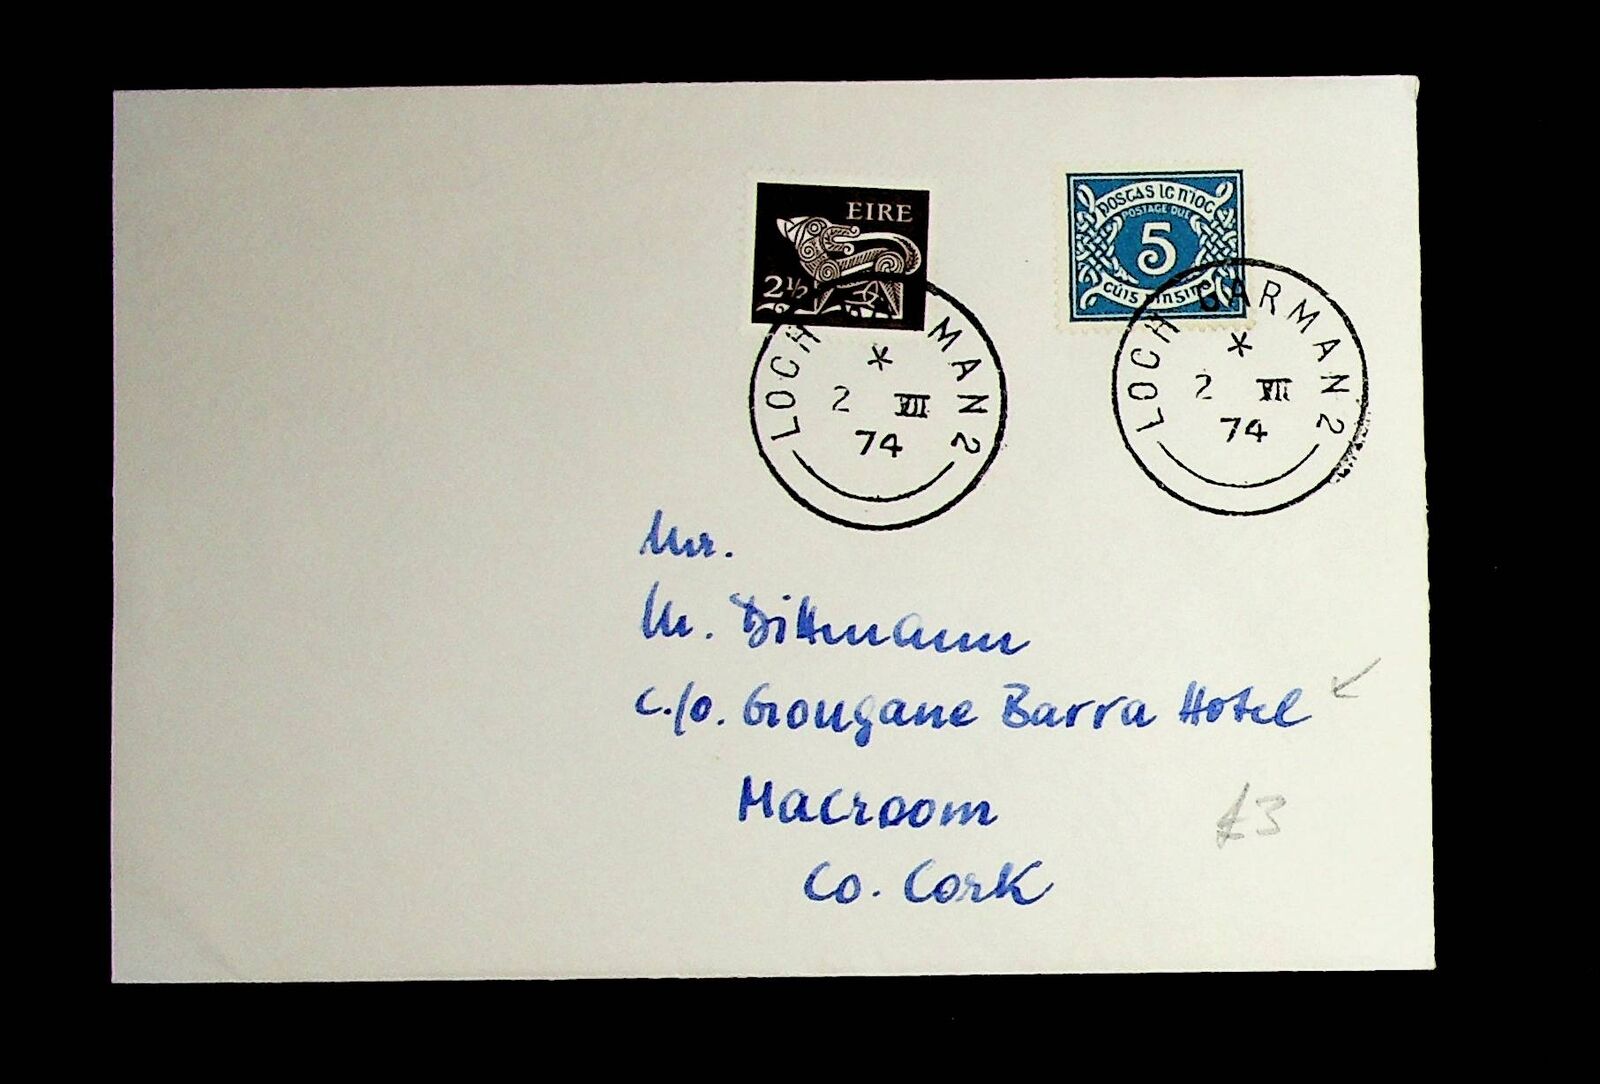 EIRE
2½
POSTAS LE N'ÍOC
POSTAGE DUE
5
CÚIG PINSIN
LOCH MAN 2
*
2 VII
74
LOCH GARMAN 2
*
2 VII
74
Mr.
M. Dittmann
c./o. Gougane Barra Hotel
Macroom
£3
Co. Cork